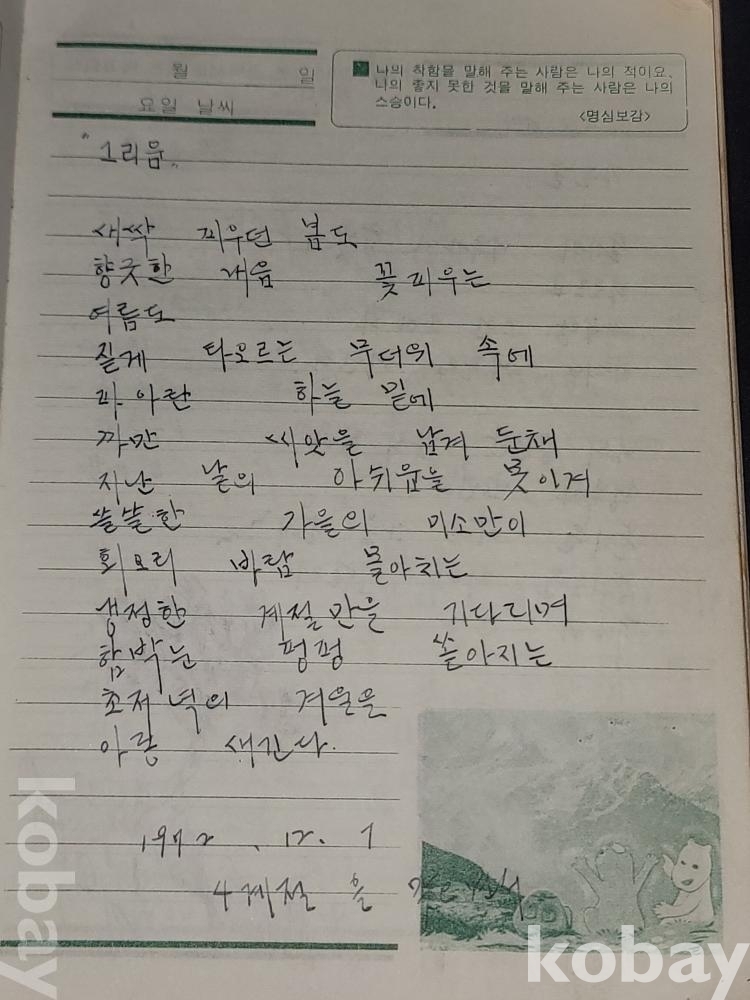 월 일
요일 날씨
나의 착함을 말해 주는 사람은 나의 적이요,
나의 좋지 못한 것을 말해 주는 사람은 나의
스승이다.
<명심보감>
"그리움"
새싹 피우던 봄도
향긋한 내음 꽃피우는
여름도
짙게 타오르는 무더위 속에
파아란 하늘 밑에
까만 씨앗을 남겨 둔채
지난 날의 아쉬움을 못이겨
쓸쓸한 가을의 미소만이
회오리 바람 몰아치는
냉정한 계절만을 기다리며
함박눈 펑펑 쏟아지는
초저녁의 겨울을
아로 새긴다.
12. 7
4계절 을
kobay
kobay